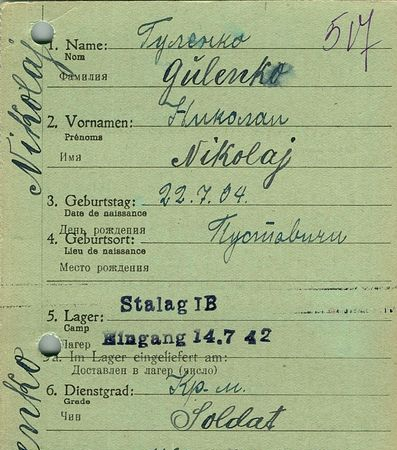 1. Name: Гуленко 517
Nom
Фамилия Gulenko
2. Vornamen: Николай
Prénoms
Имя Nikolaj
3. Geburtstag: 22.7.04.
Date de naissance
День рождения
4. Geburtsort: Пустовичи
Lieu de naissance
Место рождения
Stalag IB
5. Lager:
Camp
Лагерь Eingang 14.7 42
5a. Im Lager eingeliefert am:
Доставлен в лагерь (число)
6. Dienstgrad: Кр-м.
Grade
Чин Soldat
Nikolaj
enko